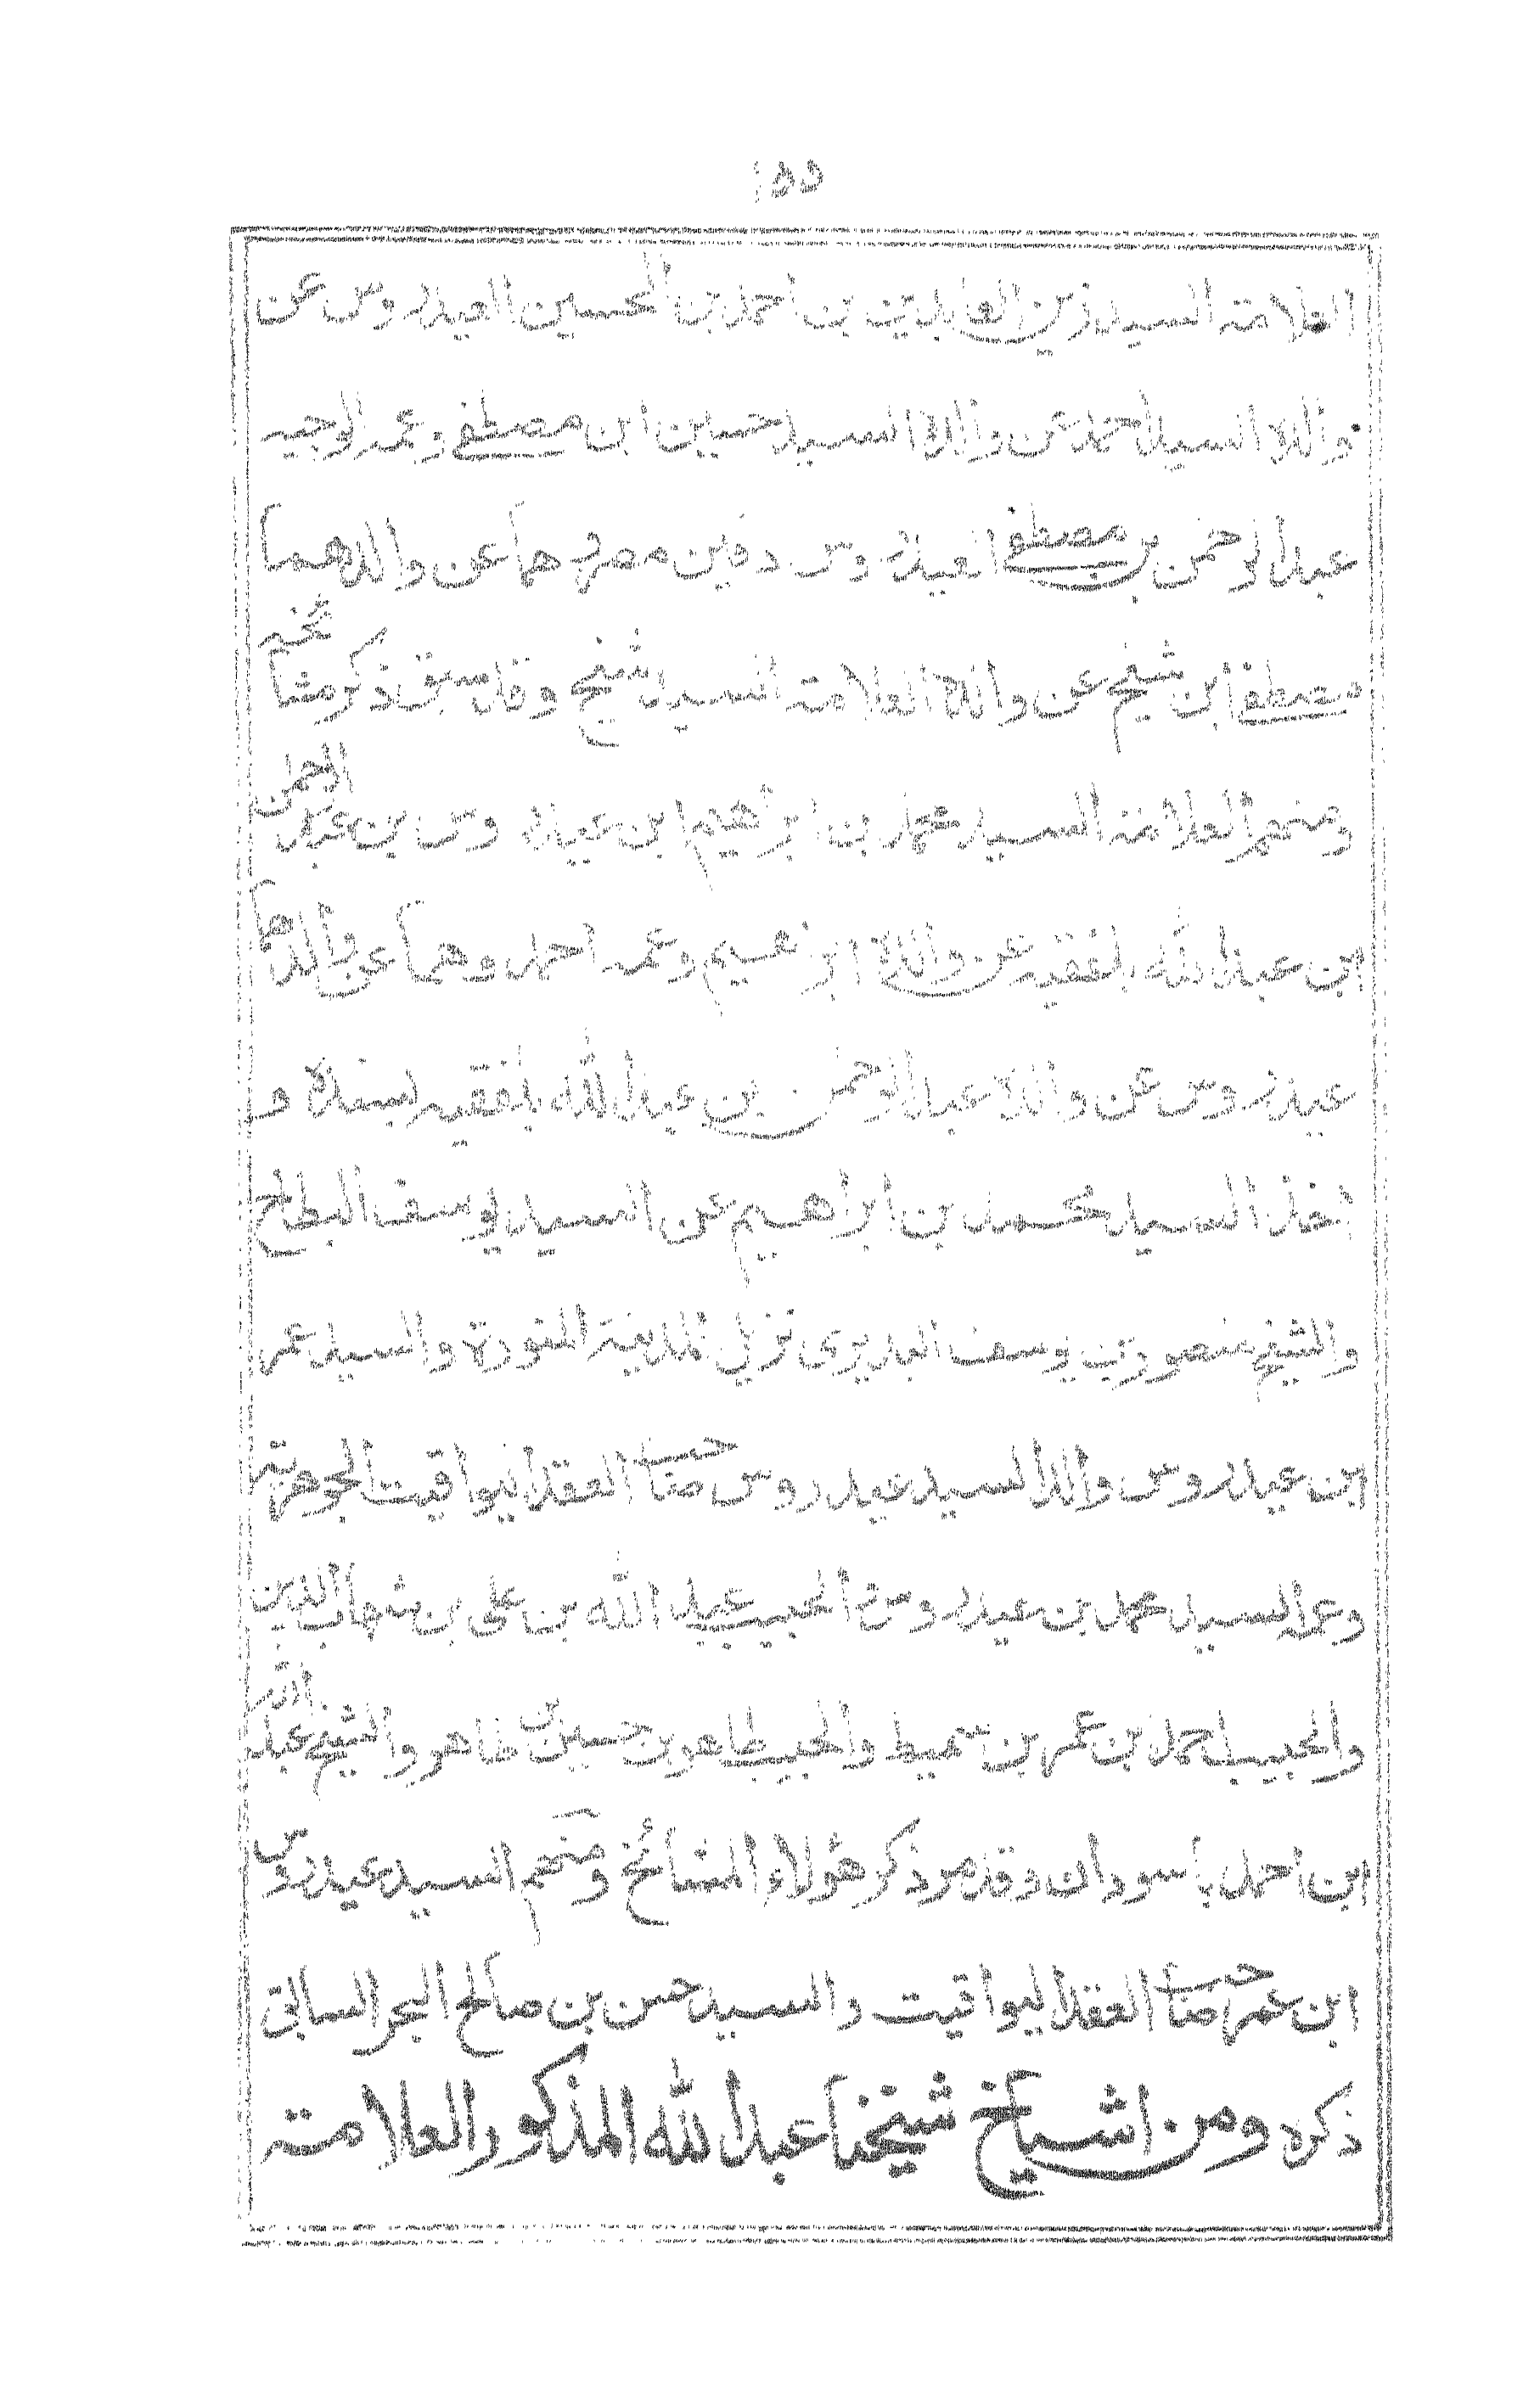 ١٥٥
العلامة السيد زين العابدين بن احمد بن الحسين العيدروس عن
والده السيد احمد عن والده السيد حسين ابن مصطفى وعمه الوجيه
عبد الرحمن بن مصطفى العيدروس دفين مصر هما عن والدهما
مصطفى ابن شيخ عن والده العلامة السيد شيخ وقد سبق ذكر مشايخه
ومنهم العلامة السيد محمد بن ابراهيم ابن عيدروس بن عبد الرحمن
ابن عبد الله بلفقيه عن والده ابراهيم وعمه احمد وهما عن والدهما
عيدروس عن والده عبد الرحمن بن عبد الله بلفقيه بسنده و
اخذ السيد محمد بن ابراهيم عن السيد يوسف البطاح
والشيخ منصور بن يوسف البديري نزيل المدينة المنورة والسيد عمر
ابن عيدروس والد السيد عيدروس صاحب العقد اليواقيت الجوهرية
وعمه السيد محمد بن عيدروس والحبيب عبد الله بن علي بن شهاب الدين
والحبيب احمد بن عمر بن سميط والحبيب طاهر بن حسين بن طاهر والشيخ عبد الله
ابن احمد باسودان وقد مر ذكر هؤلاء المشائخ ومنهم السيد عيدروس
ابن عمر صاحب العقد اليواقيت والسيد حسن بن صالح البحر السابق
ذكره ومن اشياخ شيخنا عبد الله المذكور العلامة